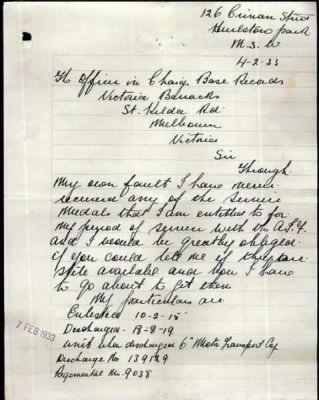 126 Crinan Street
Hurlstone Park
N.S.W
4-2-33
To Officer in Charge Base Records
Victoria Barracks
St. Kilda Rd.
Melbourn
Victoria
Sir
Through
my own fault I have never
received any of the Service
Medals that I am entitled to for
my period of service with the A.I.F.
and I would be greatly obliged
if you could let me if they are
still available and how I have
to go about to get them
My particulars are
Enlisted 10-2-15
Discharged 19-8-19
unit when discharged 6th Motor Transport Coy
Discharge No 139129
Regimental No. 9038
7 FEB 1933